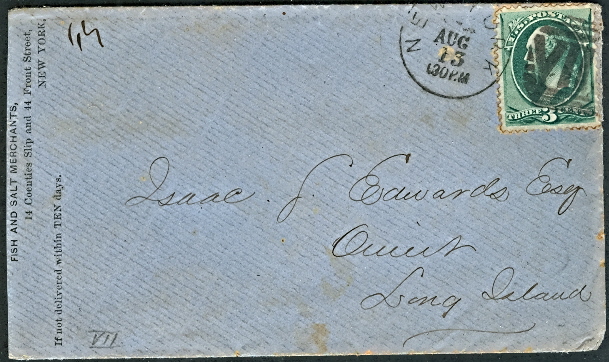 FISH AND SALT MERCHANTS,
14 Coenties Slip and 44 Front Street,
NEW YORK.
If not delivered within TEN days.
NEW YORK
AUG
13
630PM
U.S. POSTAGE
VI
THREE 3 CENTS
Isaac J. Edwards Esq
Orient
Long Island
VII